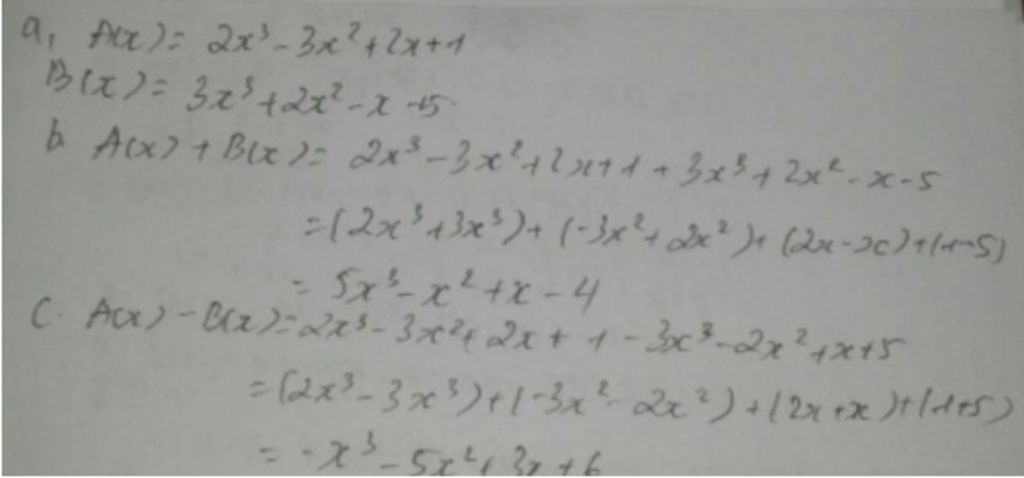 a, A(x) = 2x³ - 3x² + 2x + 1
B(x) = 3x³ + 2x² - x - 5
b A(x) + B(x) = 2x³ - 3x² + 2x + 1 + 3x³ + 2x² - x - 5
= (2x³ + 3x³) + (-3x² + 2x²) + (2x - x) + (1 - 5)
= 5x³ - x² + x - 4
C. A(x) - B(x) = 2x³ - 3x² + 2x + 1 - 3x³ - 2x² + x + 5
= (2x³ - 3x³) + (-3x² - 2x²) + (2x + x) + (1 + 5)
= -x³ - 5x² + 3x + 6